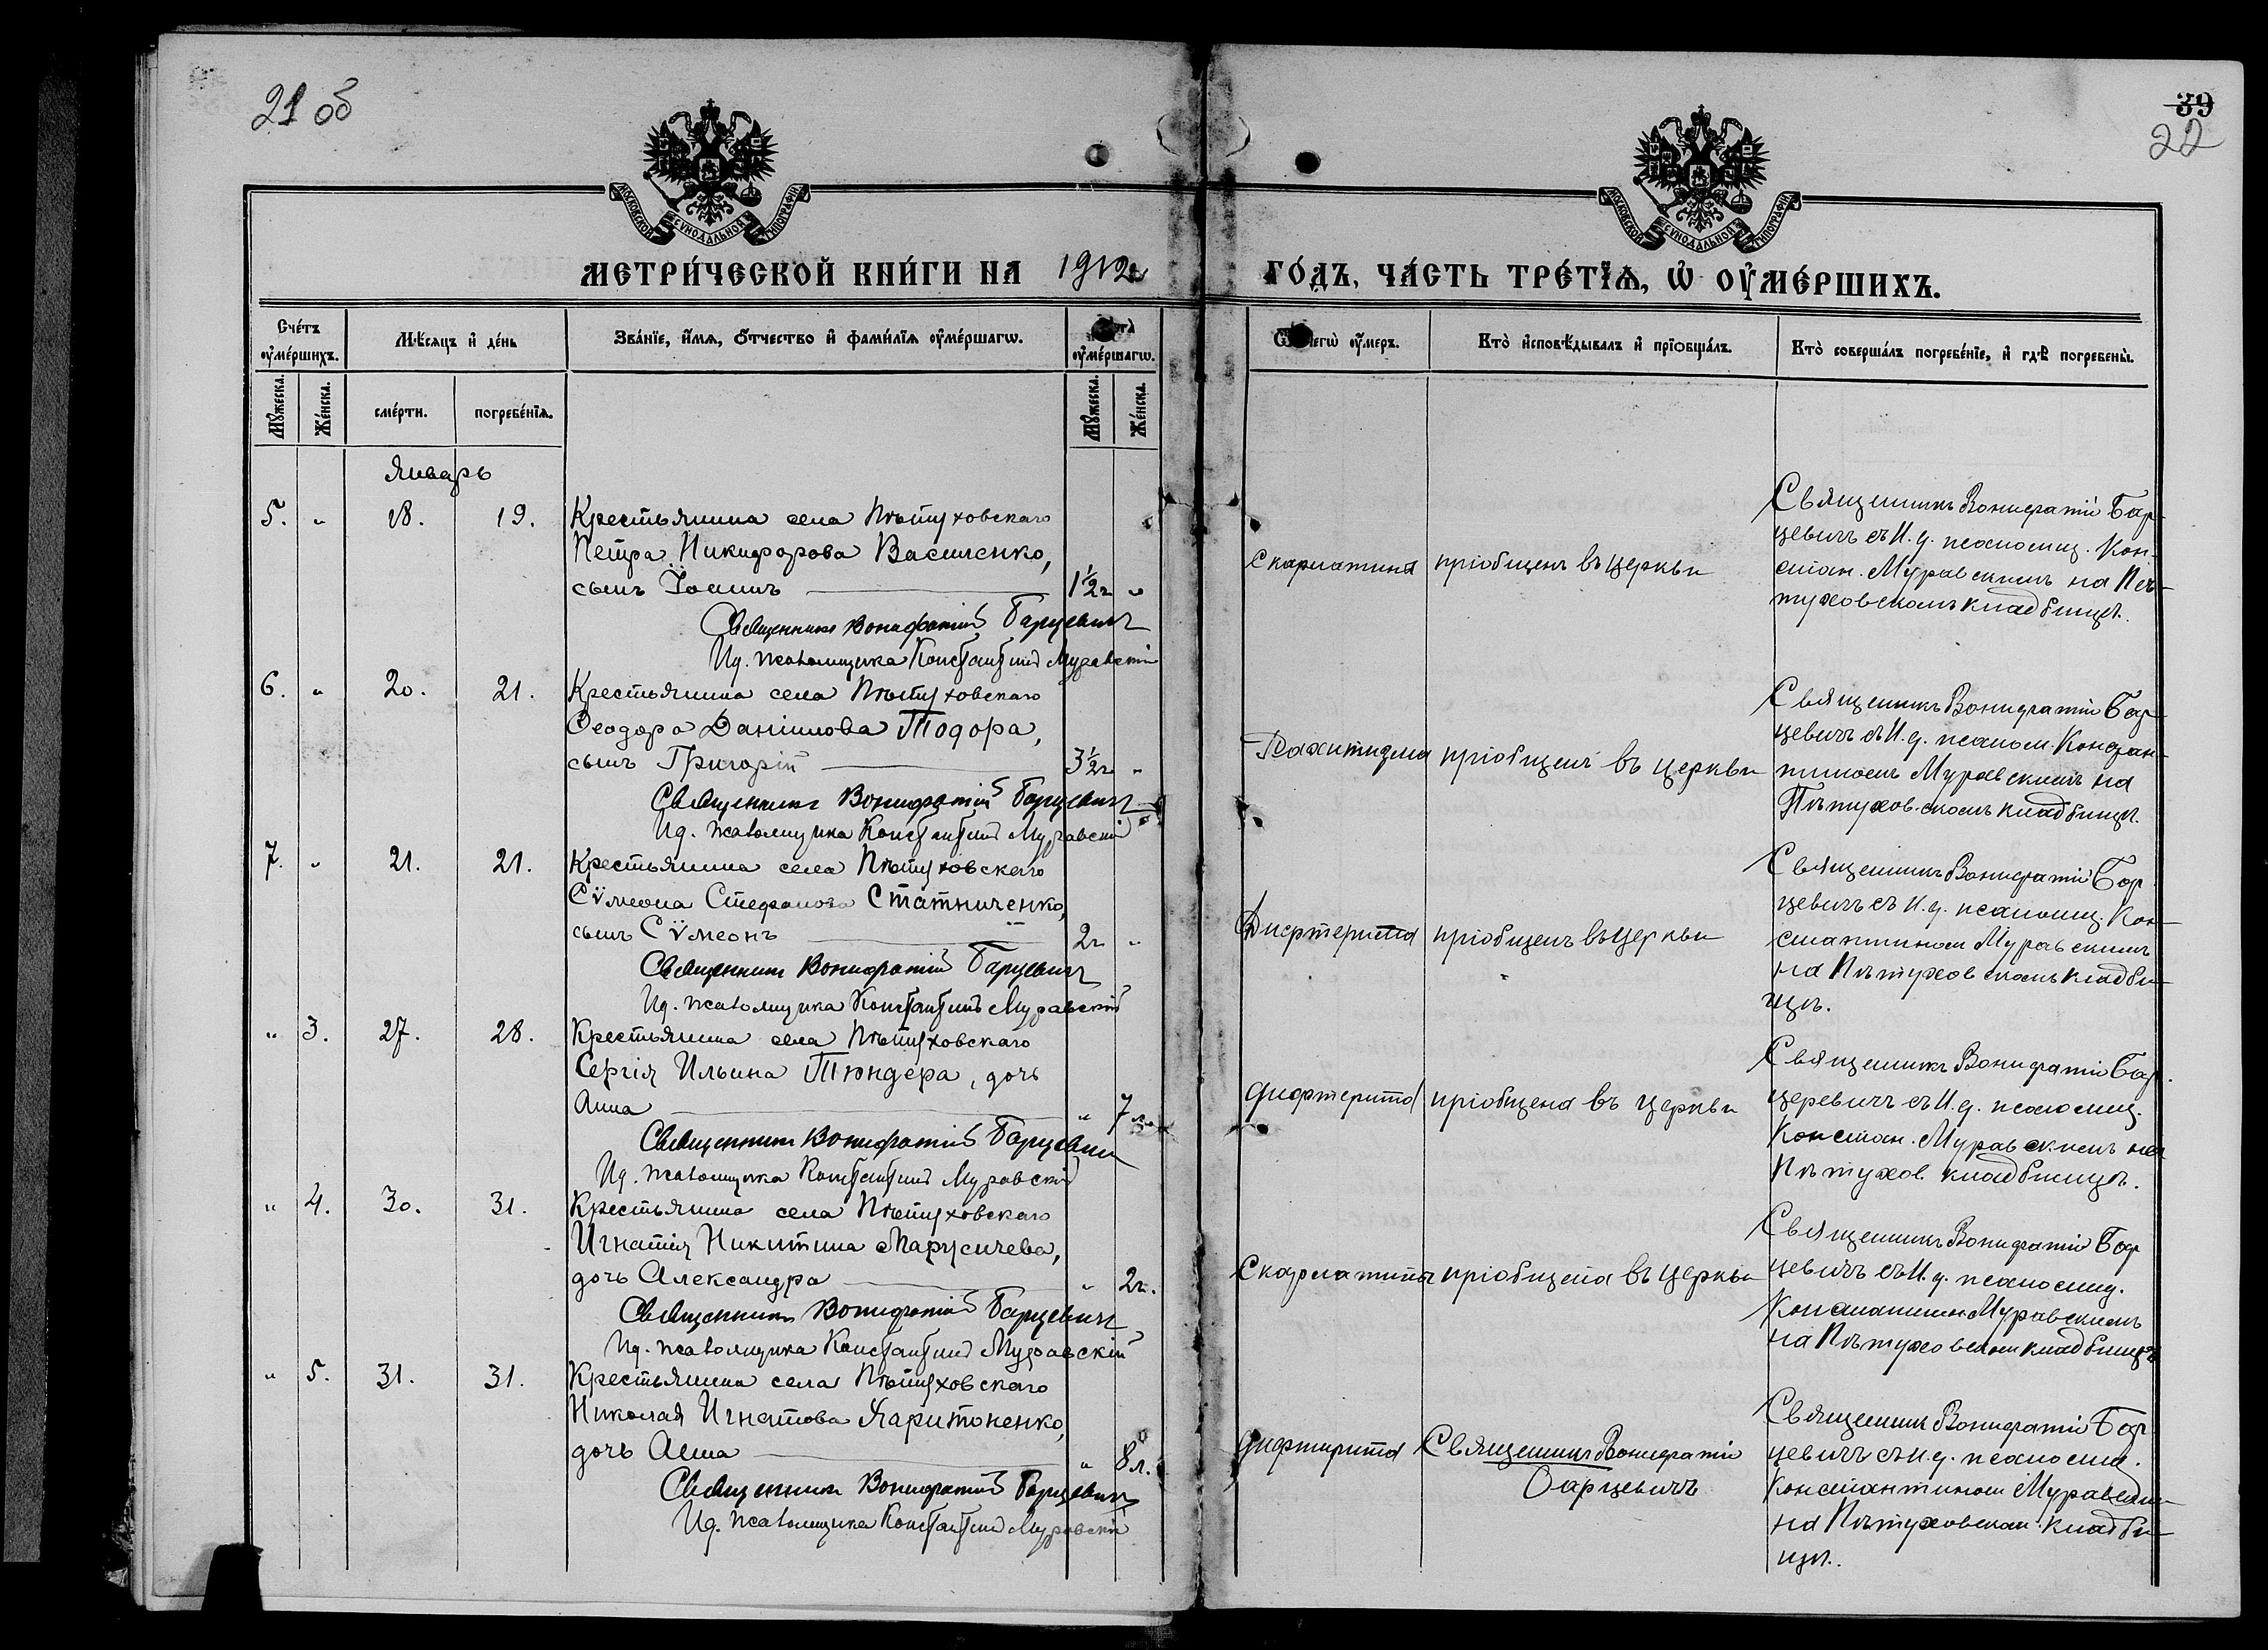 21 об
39
22
МОСКОВСКОЙ СѴНОДАЛЬНОЙ ТИПОГРАФІИ
МОСКОВСКОЙ СѴНОДАЛЬНОЙ ТИПОГРАФІИ
МЕТРИ́ЧЕСКОЙ КНИ́ГИ НА 1912
ГО́ДЪ, ЧА́СТЬ ТРЕ́ТІѦ, Ѡ҆ ОУ҆МЕ́РШИХЪ.
Сче́тъ оу҆ме́ршихъ.
Мѣ́сяцъ и҆ де́нь
Зва́нїе, и҆́мѧ, ѻ҆́тчество и҆ фами́лїѧ оу҆ме́ршагѡ.
оу҆ме́ршагѡ.
Мꙋ́жеска.
Же́нска.
сме́рти.
погребе́нїѧ.
Мꙋ́жеска.
Же́нска.
чегѡ̀ оу҆́меръ.
Кто̀ и҆сповѣ́дывалъ и҆ прїѡбща́лъ.
Кто̀ соверша́лъ погребе́нїе, и҆ гдѣ̀ погребены̀.
Январь
5. „ 18. 19. Крестьянина села Пѣтуховскаго
Петра Никифорова Василенко,
сынъ Іоаннъ 1½ г „
Священникъ Вонифатій Барцевичъ
И д. псаломщика Константинъ Муравскій
Скарлатина
пріобщенъ въ церкви
Священникъ Вонифатій Бар-
цевичъ съ И. д. псаломщ. Кон-
стан. Муравскимъ на Пѣ-
туховскомъ кладбищѣ.
6. „ 20. 21. Крестьянина села Пѣтуховскаго
Ѳеодора Даніилова Тодора,
сынъ Григорій 3½ г „
Священникъ Вонифатій Барцевичъ
И д. псаломщика Константинъ Муравскій
Рахитизма
пріобщенъ въ церкви
Священникъ Вонифатій Бар-
цевичъ съ И. д. псалом. Констан-
тиномъ Муравскимъ на
Пѣтуховскомъ кладбищѣ.
7. „ 21. 21. Крестьянина села Пѣтуховскаго
Сѵмеона Стефанова Статниченко,
сынъ Сѵмеонъ 2 г „
Священникъ Вонифатій Барцевичъ
И д. псаломщика Константинъ Муравскій
Дифтерита
пріобщенъ въ церкви
Священникъ Вонифатій Бар-
цевичъ съ И. д. псаломщ. Кон-
стантином Муравскимъ
на Пѣтуховскомъ кладби-
щѣ.
„ 3. 27. 28. Крестьянина села Пѣтуховскаго
Сергія Ильина Тюндера, дочь
Анна „ 7 л.
Священникъ Вонифатій Барцевичъ
И д. псаломщика Константинъ Муравскій
дифтерита
пріобщена въ церкви
Священникъ Вонифатій Бар-
церевичъ съ И. д. псаломщ.
Констан. Муравскимъ на
Пѣтухов. кладбищѣ.
„ 4. 30. 31. Крестьянина села Пѣтуховскаго
Игнатія Никитина Марусичева,
дочь Александра „ 2 г.
Священникъ Вонифатій Барцевичъ
И д. псаломщика Константинъ Муравскій
Скарлатины
пріобщена въ церкви
Священникъ Вонифатій Бар
цевичъ съ И. д. псаломщ.
Константином Муравскимъ
на Пѣтуховском кладбищѣ
„ 5. 31. 31. Крестьянина села Пѣтуховскаго
Николая Игнатова Харитоненко,
дочь Анна „ 8 л.
Священникъ Вонифатій Барцевичъ
И д. псаломщика Константинъ Муравскій
дифтирита
Священникъ Вонифатій
Барцевичъ
Священникъ Вонифатій Бар
цевичъ съ И. д. псаломщ.
Константином Муравским
на Пѣтуховском кладби-
щѣ.